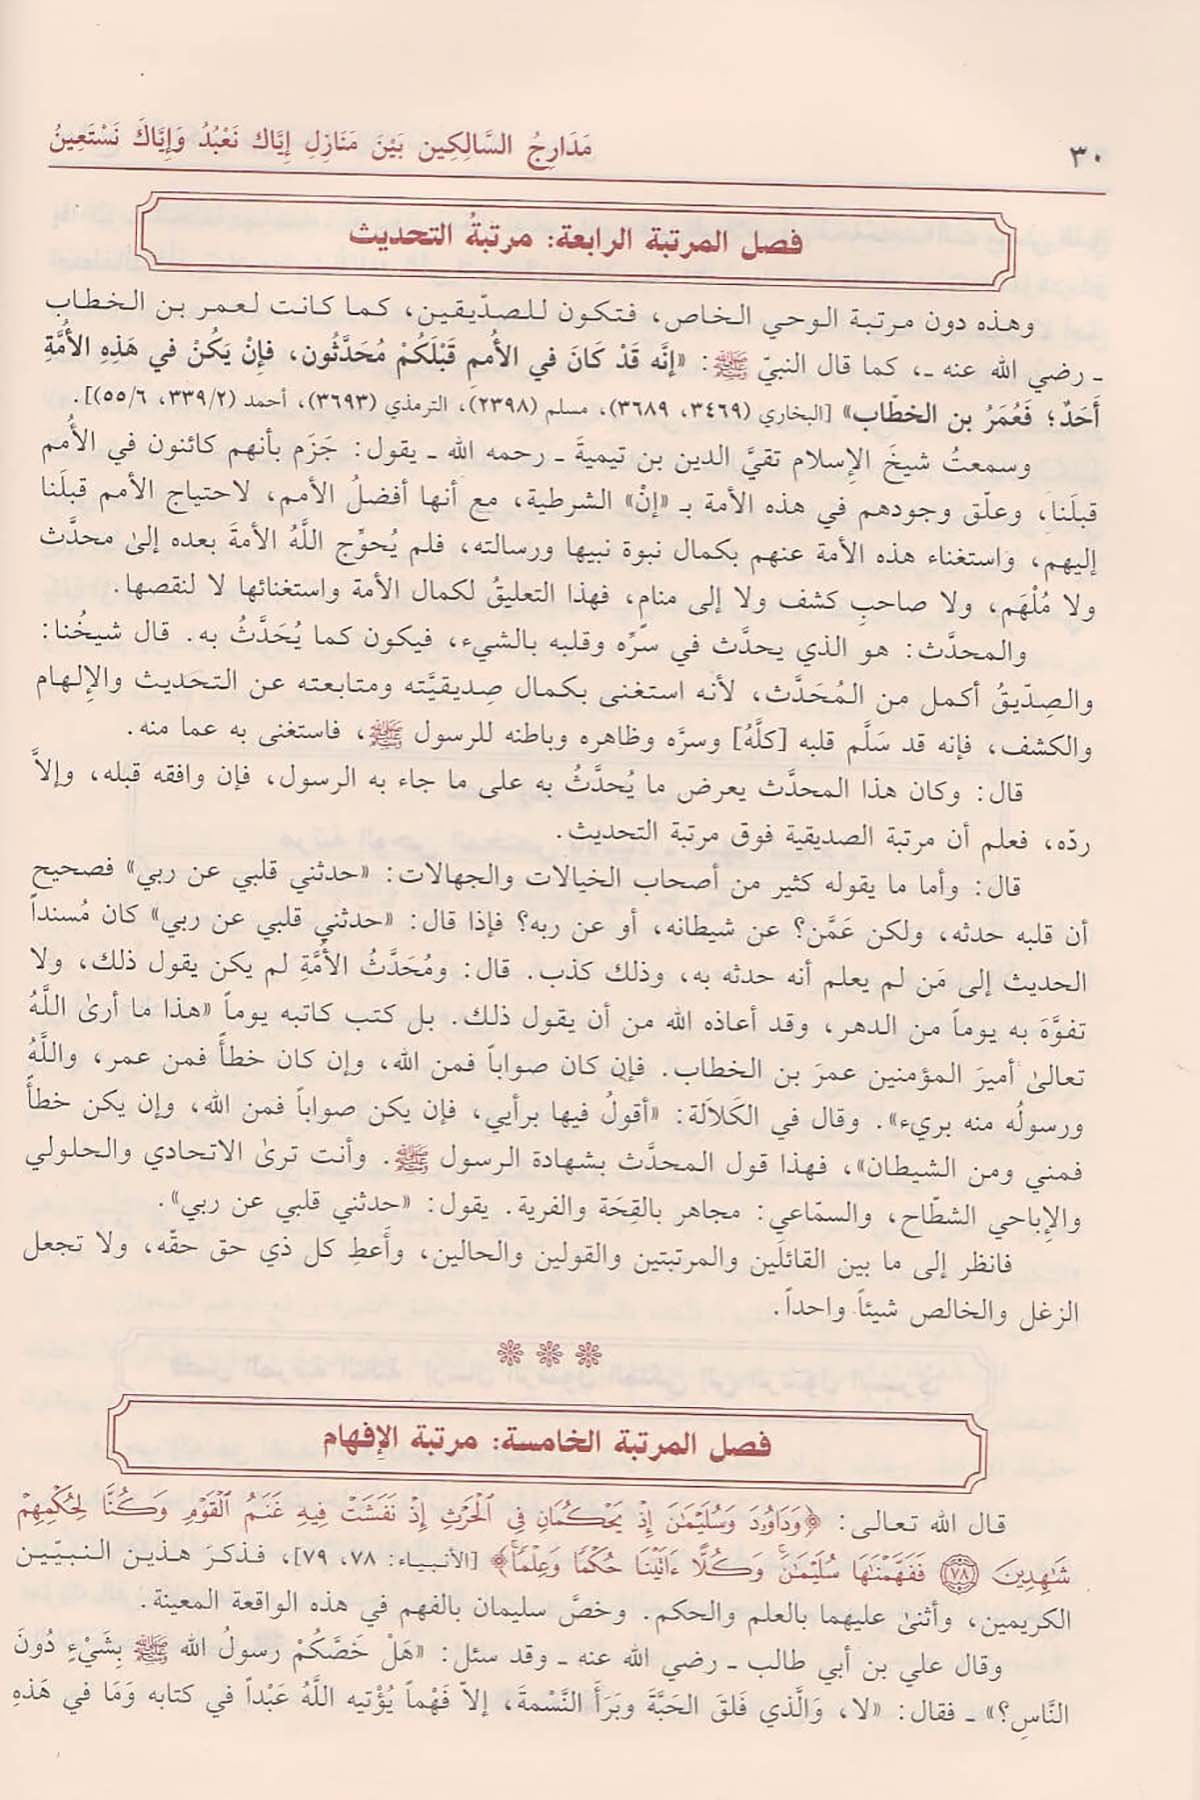 ٣٠
مَدَارِجُ السَّالِكِين بَيْنَ مَنَازِلِ إِيَّاك نَعْبُدُ وَإِيَّاكَ نَسْتَعِينُ
فصل المرتبة الرابعة: مرتبةُ التحديث
وهذه دون مرتبة الوحي الخاص، فتكون للصدّيقين، كما كانت لعمر بن الخطاب
ـ رضي الله عنه ـ، كما قال النبيّ ﷺ: «إنَّه قَدْ كَانَ في الأُممِ قَبْلَكُمْ مُحَدَّثُون، فإنْ يَكُنْ في هَذِهِ الأمَّةِ
أَحَدٌ؛ فَعُمَرُ بن الخطّاب» [البخاري (٣٤٦٩، ٣٦٨٩)، مسلم (٢٣٩٨)، الترمذي (٣٦٩٣)، أحمد (٣٣٩/٢، ٥٥/٦)].
وسمعتُ شيخَ الإسلام تقيَّ الدين بن تيميةَ ـ رحمه الله ـ يقول: جَزَم بأنهم كائنون في الأُمم
قبلَنا، وعلّق وجودهم في هذه الأمة بـ «إنْ» الشرطية، مع أنها أفضلُ الأمم، لاحتياج الأمم قبلَنا
إليهم، واستغناء هذه الأمة عنهم بكمال نبوة نبيها ورسالته، فلم يُحوِّج اللَّهُ الأمةَ بعده إلىٰ محدَّث
ولا مُلْهَم، ولا صاحبِ كشف ولا إلى منامٍ، فهذا التعليقُ لكمال الأمة واستغنائها لا لنقصها.
والمحدَّث: هو الذي يحدَّث في سرِّه وقلبه بالشيء، فيكون كما يُحَدَّثُ به. قال شيخُنا:
والصِدّيقُ أكمل من المُحَدَّث، لأنه استغنى بكمال صِديقيَّته ومتابعته عن التحديث والإلهام
والكشف، فإنه قد سَلَّم قلبه [كلَّهُ] وسرَّه وظاهره وباطنه للرسول ﷺ، فاستغنى به عما منه.
قال: وكان هذا المحدَّث يعرض ما يُحدَّثُ به على ما جاء به الرسول، فإن وافقه قبله، وإلاَّ
ردّه، فعلم أن مرتبة الصديقية فوق مرتبة التحديث.
قال: وأما ما يقوله كثير من أصحاب الخيالات والجهالات: «حدثني قلبي عن ربي» فصحيح
أن قلبه حدثه، ولكن عَمَّن؟ عن شيطانه، أو عن ربه؟ فإذا قال: «حدثني قلبي عن ربي» كان مُسنداً
الحديث إلى مَن لم يعلم أنه حدثه به، وذلك كذب. قال: ومُحَدَّثُ الأُمَّةِ لم يكن يقول ذلك، ولا
تفوَّهَ به يوماً من الدهر، وقد أعاذه الله من أن يقول ذلك. بل كتب كاتبه يوماً «هذا ما أرىٰ اللَّهُ
تعالىٰ أميرَ المؤمنين عمرَ بن الخطاب. فإن كان صواباً فمن الله، وإن كان خطأً فمن عمر، واللَّهُ
ورسولُه منه بريء». وقال في الكَلاَلة: «أقولُ فيها برأيي، فإن يكن صواباً فمن الله، وإن يكن خطأً
فمني ومن الشيطان»، فهذا قول المحدَّث بشهادة الرسول ﷺ. وأنت ترىٰ الاتحادي والحلولي
والإباحي الشطّاح، والسمّاعي: مجاهر بالقِحَة والفرية. يقول: «حدثني قلبي عن ربي».
فانظر إلى ما بين القائلَين والمرتبتين والقولين والحالين، وأَعطِ كل ذي حق حقّه، ولا تجعل
الزغل والخالص شيئاً واحداً.
فصل المرتبة الخامسة: مرتبة الإفهام
قال الله تعالى: ﴿وَدَاوُۥدَ وَسُلَيْمَٰنَ إِذْ يَحْكُمَانِ فِي ٱلْحَرْثِ إِذْ نَفَشَتْ فِيهِ غَنَمُ ٱلْقَوْمِ وَكُنَّا لِحُكْمِهِمْ
شَٰهِدِينَ ٧٨ فَفَهَّمْنَٰهَا سُلَيْمَٰنَ وَكُلًّا ءَاتَيْنَا حُكْمًا وَعِلْمًا﴾ [الأنبياء: ٧٨، ٧٩]، فذكرَ هذين النبيّين
الكريمين، وأثنىٰ عليهما بالعلم والحكم. وخصَّ سليمان بالفهم في هذه الواقعة المعينة.
وقال علي بن أبي طالب ـ رضي الله عنه ـ وقد سئل: «هَلْ خَصَّكُمْ رسولُ الله ﷺ بِشَيْءٍ دُونَ
النَّاسِ؟» ـ فقال: «لا، وَالَّذي فَلقَ الحَبَّةَ وبَرَأَ النَّسْمةَ، إلاّ فَهْماً يُؤْتيه اللَّهُ عَبْداً في كتابه وَمَا في هَذهِ